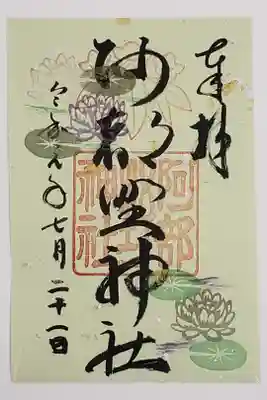 奉拝
阿部野神社
令和元年七月二十一日
阿部野神社